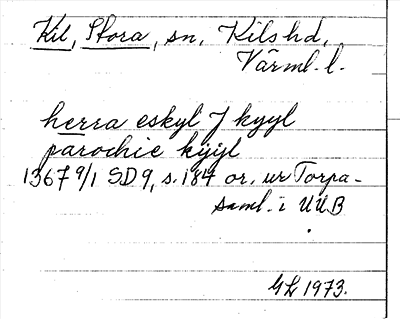 Kil, Stora, sn, Kils hd,
Värml. l.
herra eskyl J kyyl
parochie kyyl
1367 9/1 SD 9, s. 184 or. ur Torpa-
saml. i UUB
GL 1973.